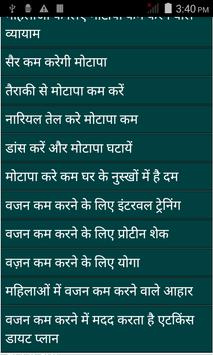 3:40 PM
महिलाओं के लिए मोटापा कम करने वाले
व्यायाम
सैर कम करेगी मोटापा
तैराकी से मोटापा कम करें
नारियल तेल करे मोटापा कम
डांस करें और मोटापा घटायें
मोटापा करे कम घर के नुस्खों में है दम
वजन कम करने के लिए इंटरवल ट्रेनिंग
वजन कम करने के लिए प्रोटीन शेक
वज़न कम करने के लिए योगा
महिलाओं में वजन कम करने वाले आहार
वजन कम करने में मदद करता है एटकिंस
डायट प्लान